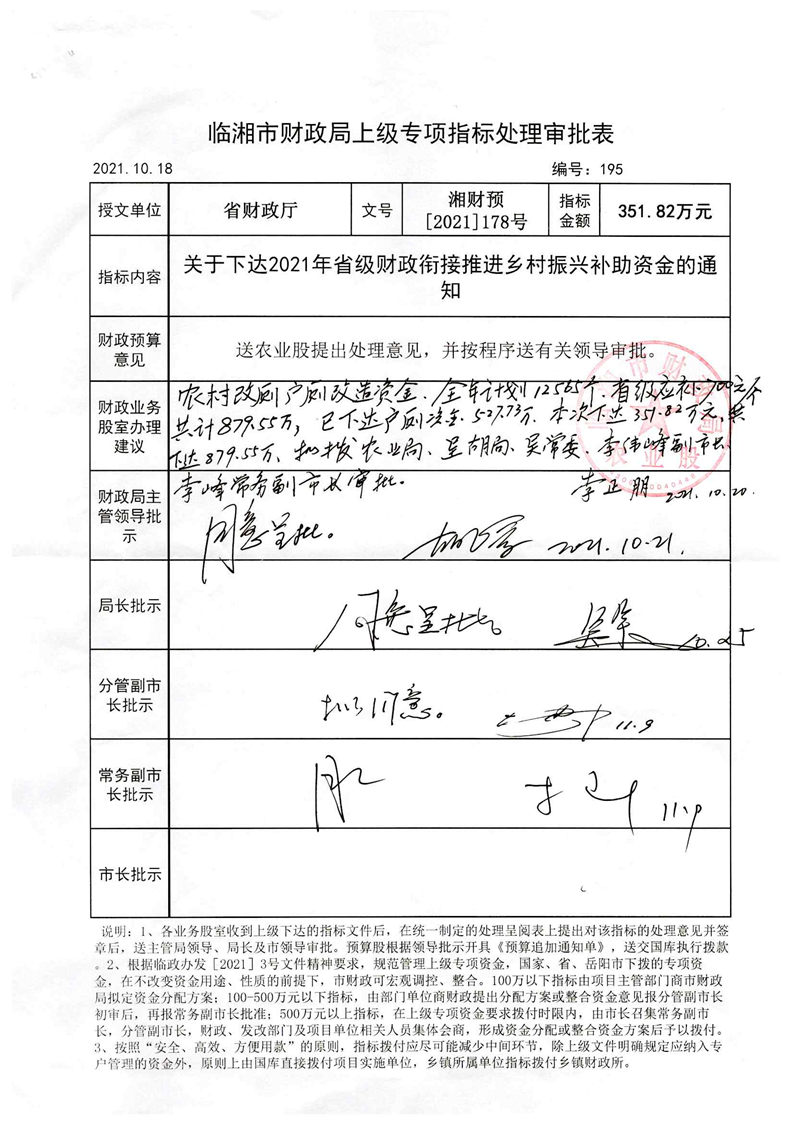 临湘市财政局上级专项指标处理审批表
2021.10.18
编号：195
授文单位
省财政厅
文号
湘财预
[2021]178号
指标
金额
351.82万元
指标内容
关于下达2021年省级财政衔接推进乡村振兴补助资金的通
知
财政预算
意见
送农业股提出处理意见，并按程序送有关领导审批。
财政业务
股室办理
建议
农村改厕户厕改造资金、全年计划12565个，省级应补700元/个
共计879.55万，已下达户厕资金527.73万，本次下达351.82万元，共
下达879.55万、拟拨农业局、呈胡局、吴常委、李伟峰副市长、
李峰常务副市长审批。
李正朋 2021.10.20.
农业股
财政局主
管领导批
示
同意呈批。
2021.10.21.
局长批示
同意呈批。
10.25
分管副市
长批示
拟同意。
11.9
常务副市
长批示
同意
11.9
市长批示
说明：1、各业务股室收到上级下达的指标文件后，在统一制定的处理呈阅表上提出对该指标的处理意见并签
章后，送主管局领导、局长及市领导审批。预算股根据领导批示开具《预算追加通知单》，送交国库执行拨款
。2、根据临政办发[2021]3号文件精神要求，规范管理上级专项资金，国家、省、岳阳市下拨的专项资
金，在不改变资金用途、性质的前提下，市财政可宏观调控、整合。100万以下指标由项目主管部门商市财政
局拟定资金分配方案；100-500万元以下指标，由部门单位商财政提出分配方案或整合资金意见报分管副市长
初审后，再报常务副市长批准；500万元以上指标，在上级专项资金要求拨付时限内，由市长召集常务副市
长，分管副市长，财政、发改部门及项目单位相关人员集体会商，形成资金分配或整合资金方案后予以拨付。
3、按照“安全、高效、方便用款”的原则，指标拨付应尽可能减少中间环节，除上级文件明确规定应纳入专
户管理的资金外，原则上由国库直接拨付项目实施单位，乡镇所属单位指标拨付乡镇财政所。